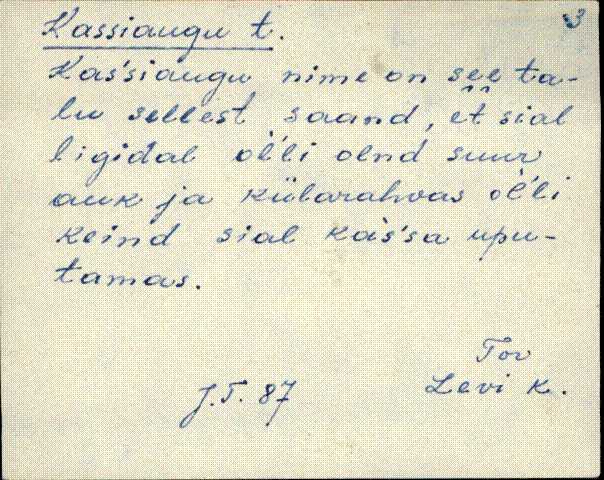 3
Kassiaugu t.
Kas'siaugu nime on see ta-
lu sellest saand, et sial
ligidal ol'li olnd suur
auk ja külarahvas ol'li
keind sial kas'sa upu-
tamas.
Tor
Levi k.
J.T. 87